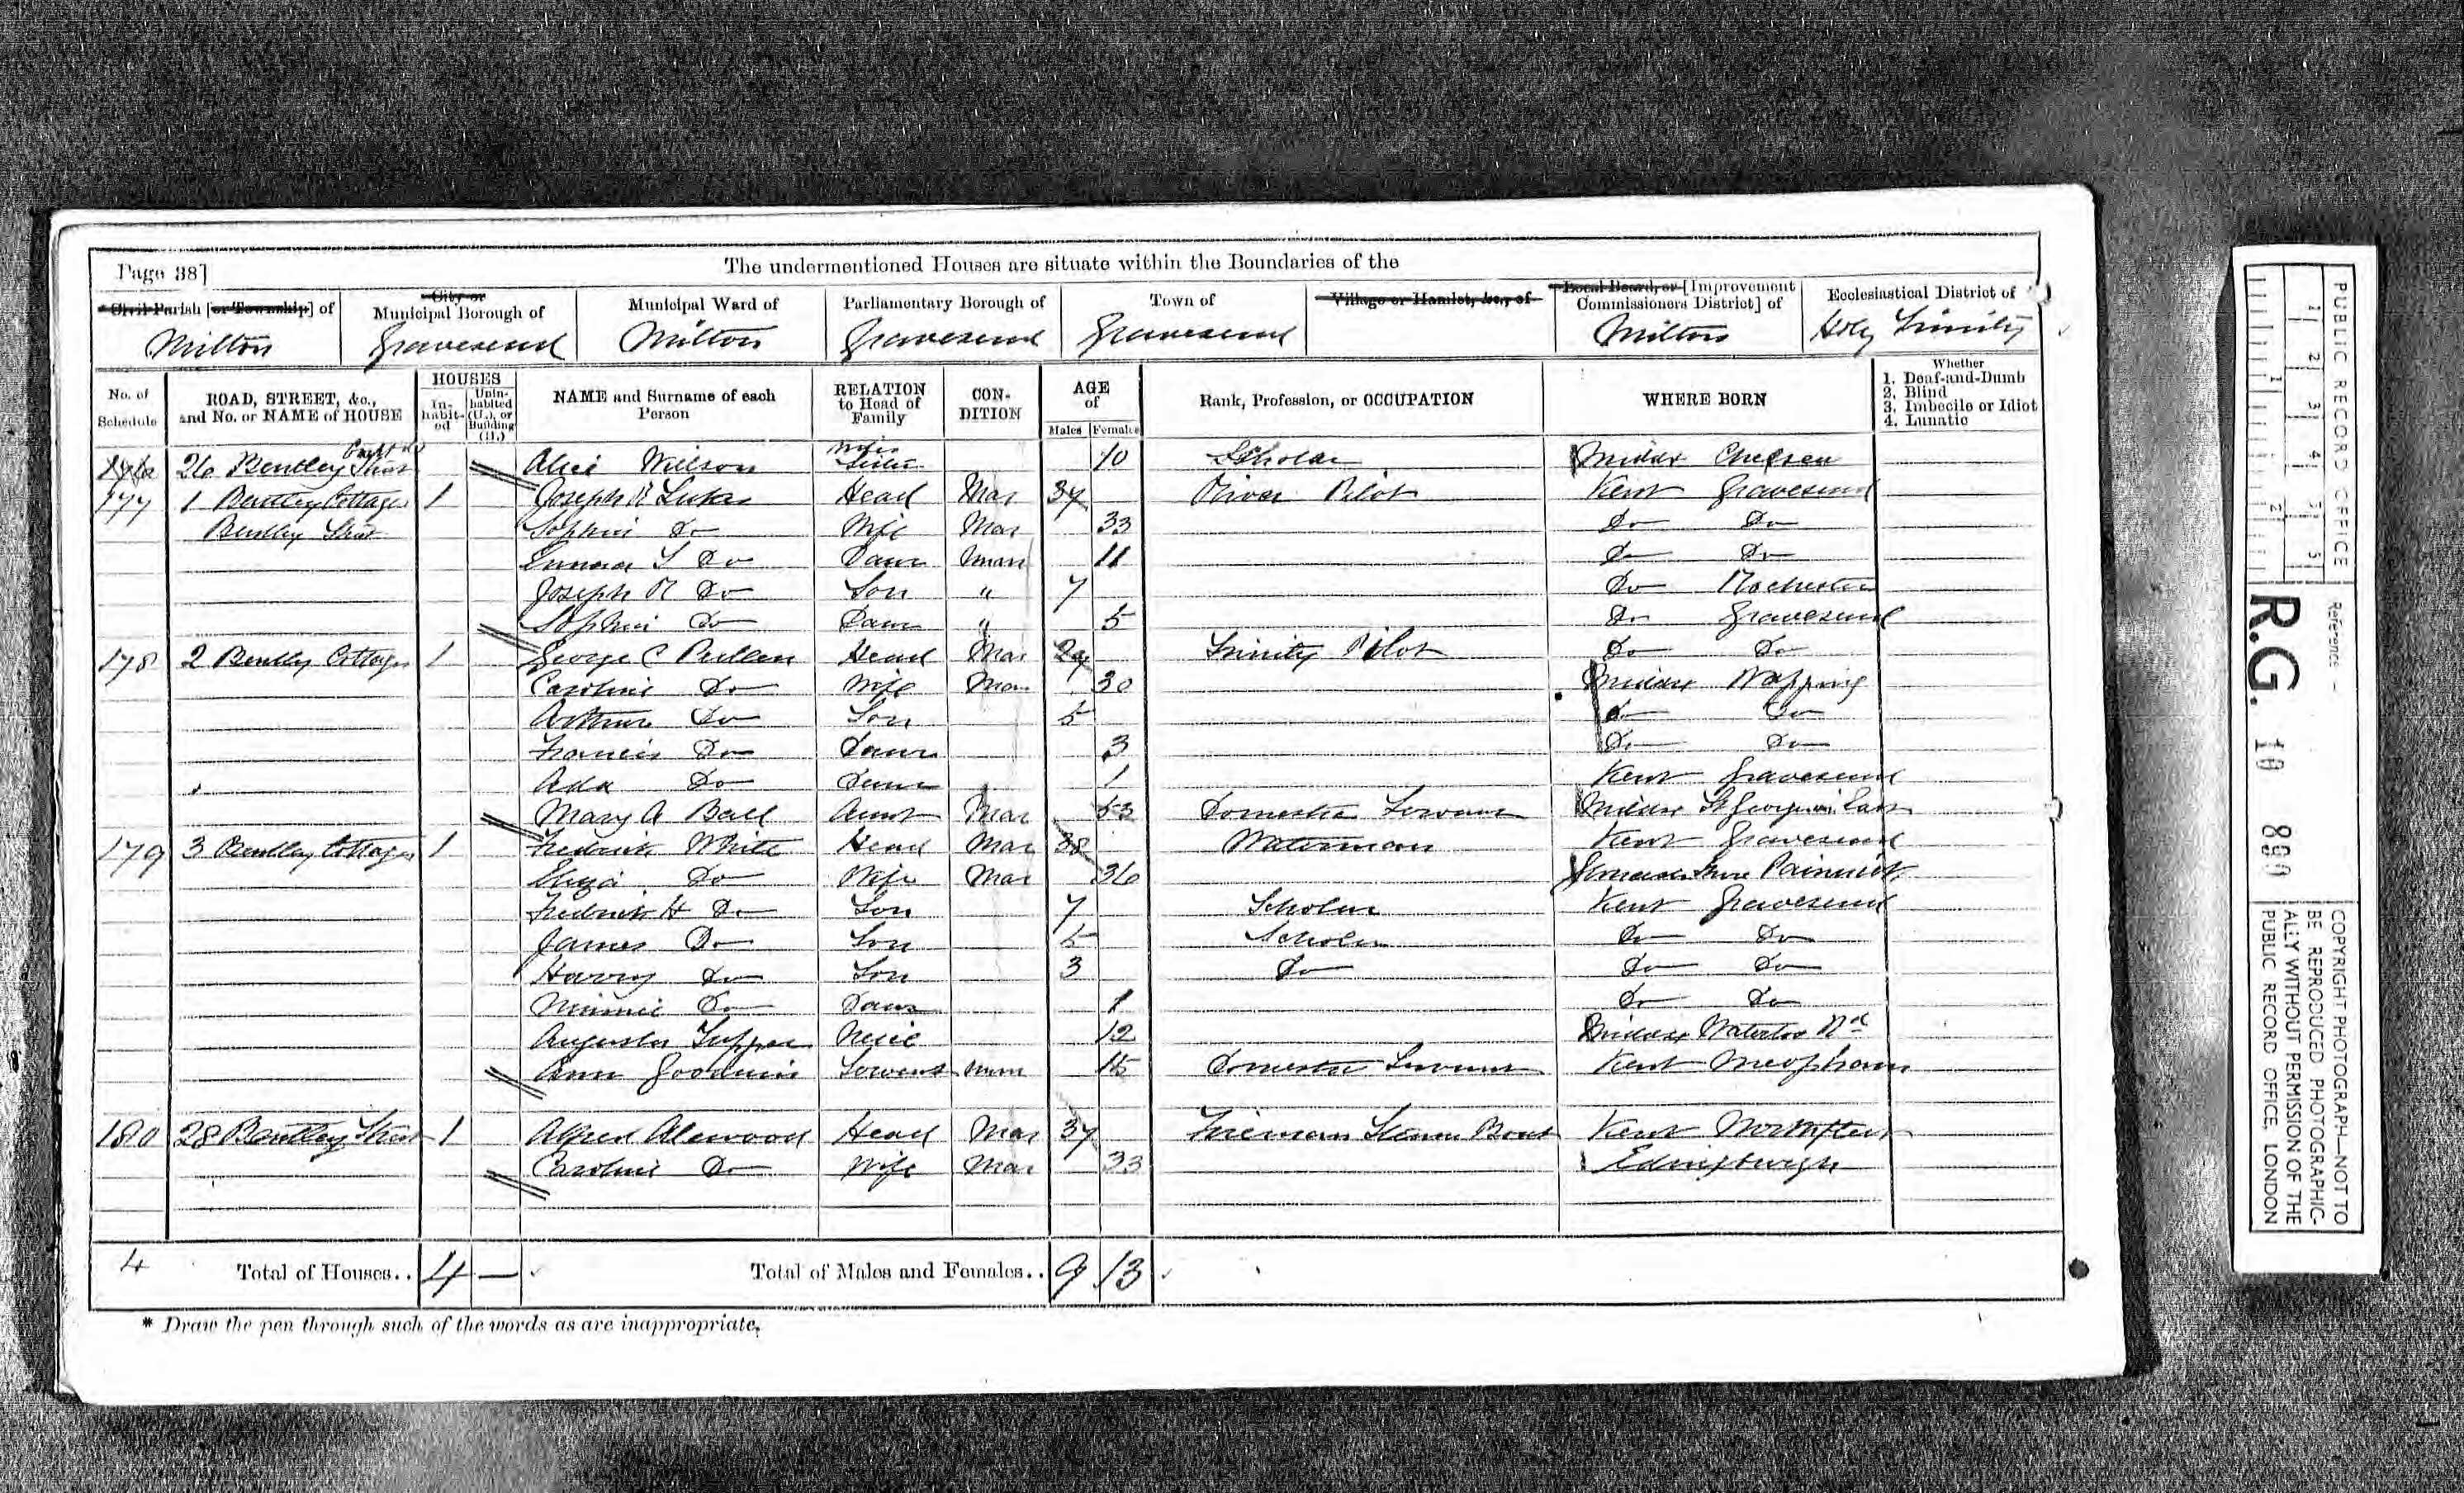 Page 38]
The undermentioned Houses are situate within the Boundaries of the
* Civil Parish [or Township] of
City or Municipal Borough of
Municipal Ward of
Parliamentary Borough of
Town of
Village or Hamlet, &c., of
Local Board, or [Improvement Commissioners District] of
Ecclesiastical District of
Milton Gravesend Milton Gravesend Gravesend Milton Holy Trinity
No. of Schedule
ROAD, STREET, &c., and No. or NAME of HOUSE
HOUSES
Inhabited
Uninhabited (U.), or Building (B.)
NAME and Surname of each Person
RELATION to Head of Family
CONDITION
AGE of
Males Females
Rank, Profession, or OCCUPATION
WHERE BORN
Whether
1. Deaf-and-Dumb
2. Blind
3. Imbecile or Idiot
4. Lunatic
26 Bentley Street Alice Willson Wifes Sister 10 Scholar Middx Chelsea
177 1 Bentley Cottages 1 Joseph R Head Mar 37 River Pilot Kent Gravesend
Bentley Street Sophia Do Wife Mar 33 Do Do
Emma S Do Daur Unm 11 Do Do
Joseph R Do Son " 7 Do Rochester
Sophia Do Daur " 5 Do Gravesend
178 2 Bentley Cottages 1 George C Pullen Head Mar 29 Trinity Pilot Do Do
Caroline Do Wife Mar 30 Middx Wapping
Arthur Do Son 5 Do Do
Francis Do Daur 3 Do Do
Ada Do Daur 1 Kent Gravesend
Mary A Ball Aunt Mar 53 Domestic Servant Middx St George in East
179 3 Bentley Cottages 1 Fredrick White Head Mar 38 Waterman Kent Gravesend
Eliza Do Wife Mar 36 Somersetshire
Fredrick H Do Son 7 Scholar Kent Gravesend
James Do Son 5 Scholar Do Do
Harry Do Son 3 Do Do Do
Minnie Do Daur 1 Do Do
Augusta Tupper Niece 12 Middx Waterloo Rd
Ann Goodwin Servant Unm 15 Domestic Servant Kent Meopham
180 28 Bentley Street 1 Alfred Alewood Head Mar 37 Fireman Steam Boat Kent Northfleet
Caroline Do Wife Mar 33 Edinburgh
4 Total of Houses.. 4 — Total of Males and Females.. 9 13
* Draw the pen through such of the words as are inappropriate.
PUBLIC RECORD OFFICE
Reference :-
R.G. 10 889
COPYRIGHT PHOTOGRAPH—NOT TO
BE REPRODUCED PHOTOGRAPHIC-
ALLY WITHOUT PERMISSION OF THE
PUBLIC RECORD OFFICE, LONDON